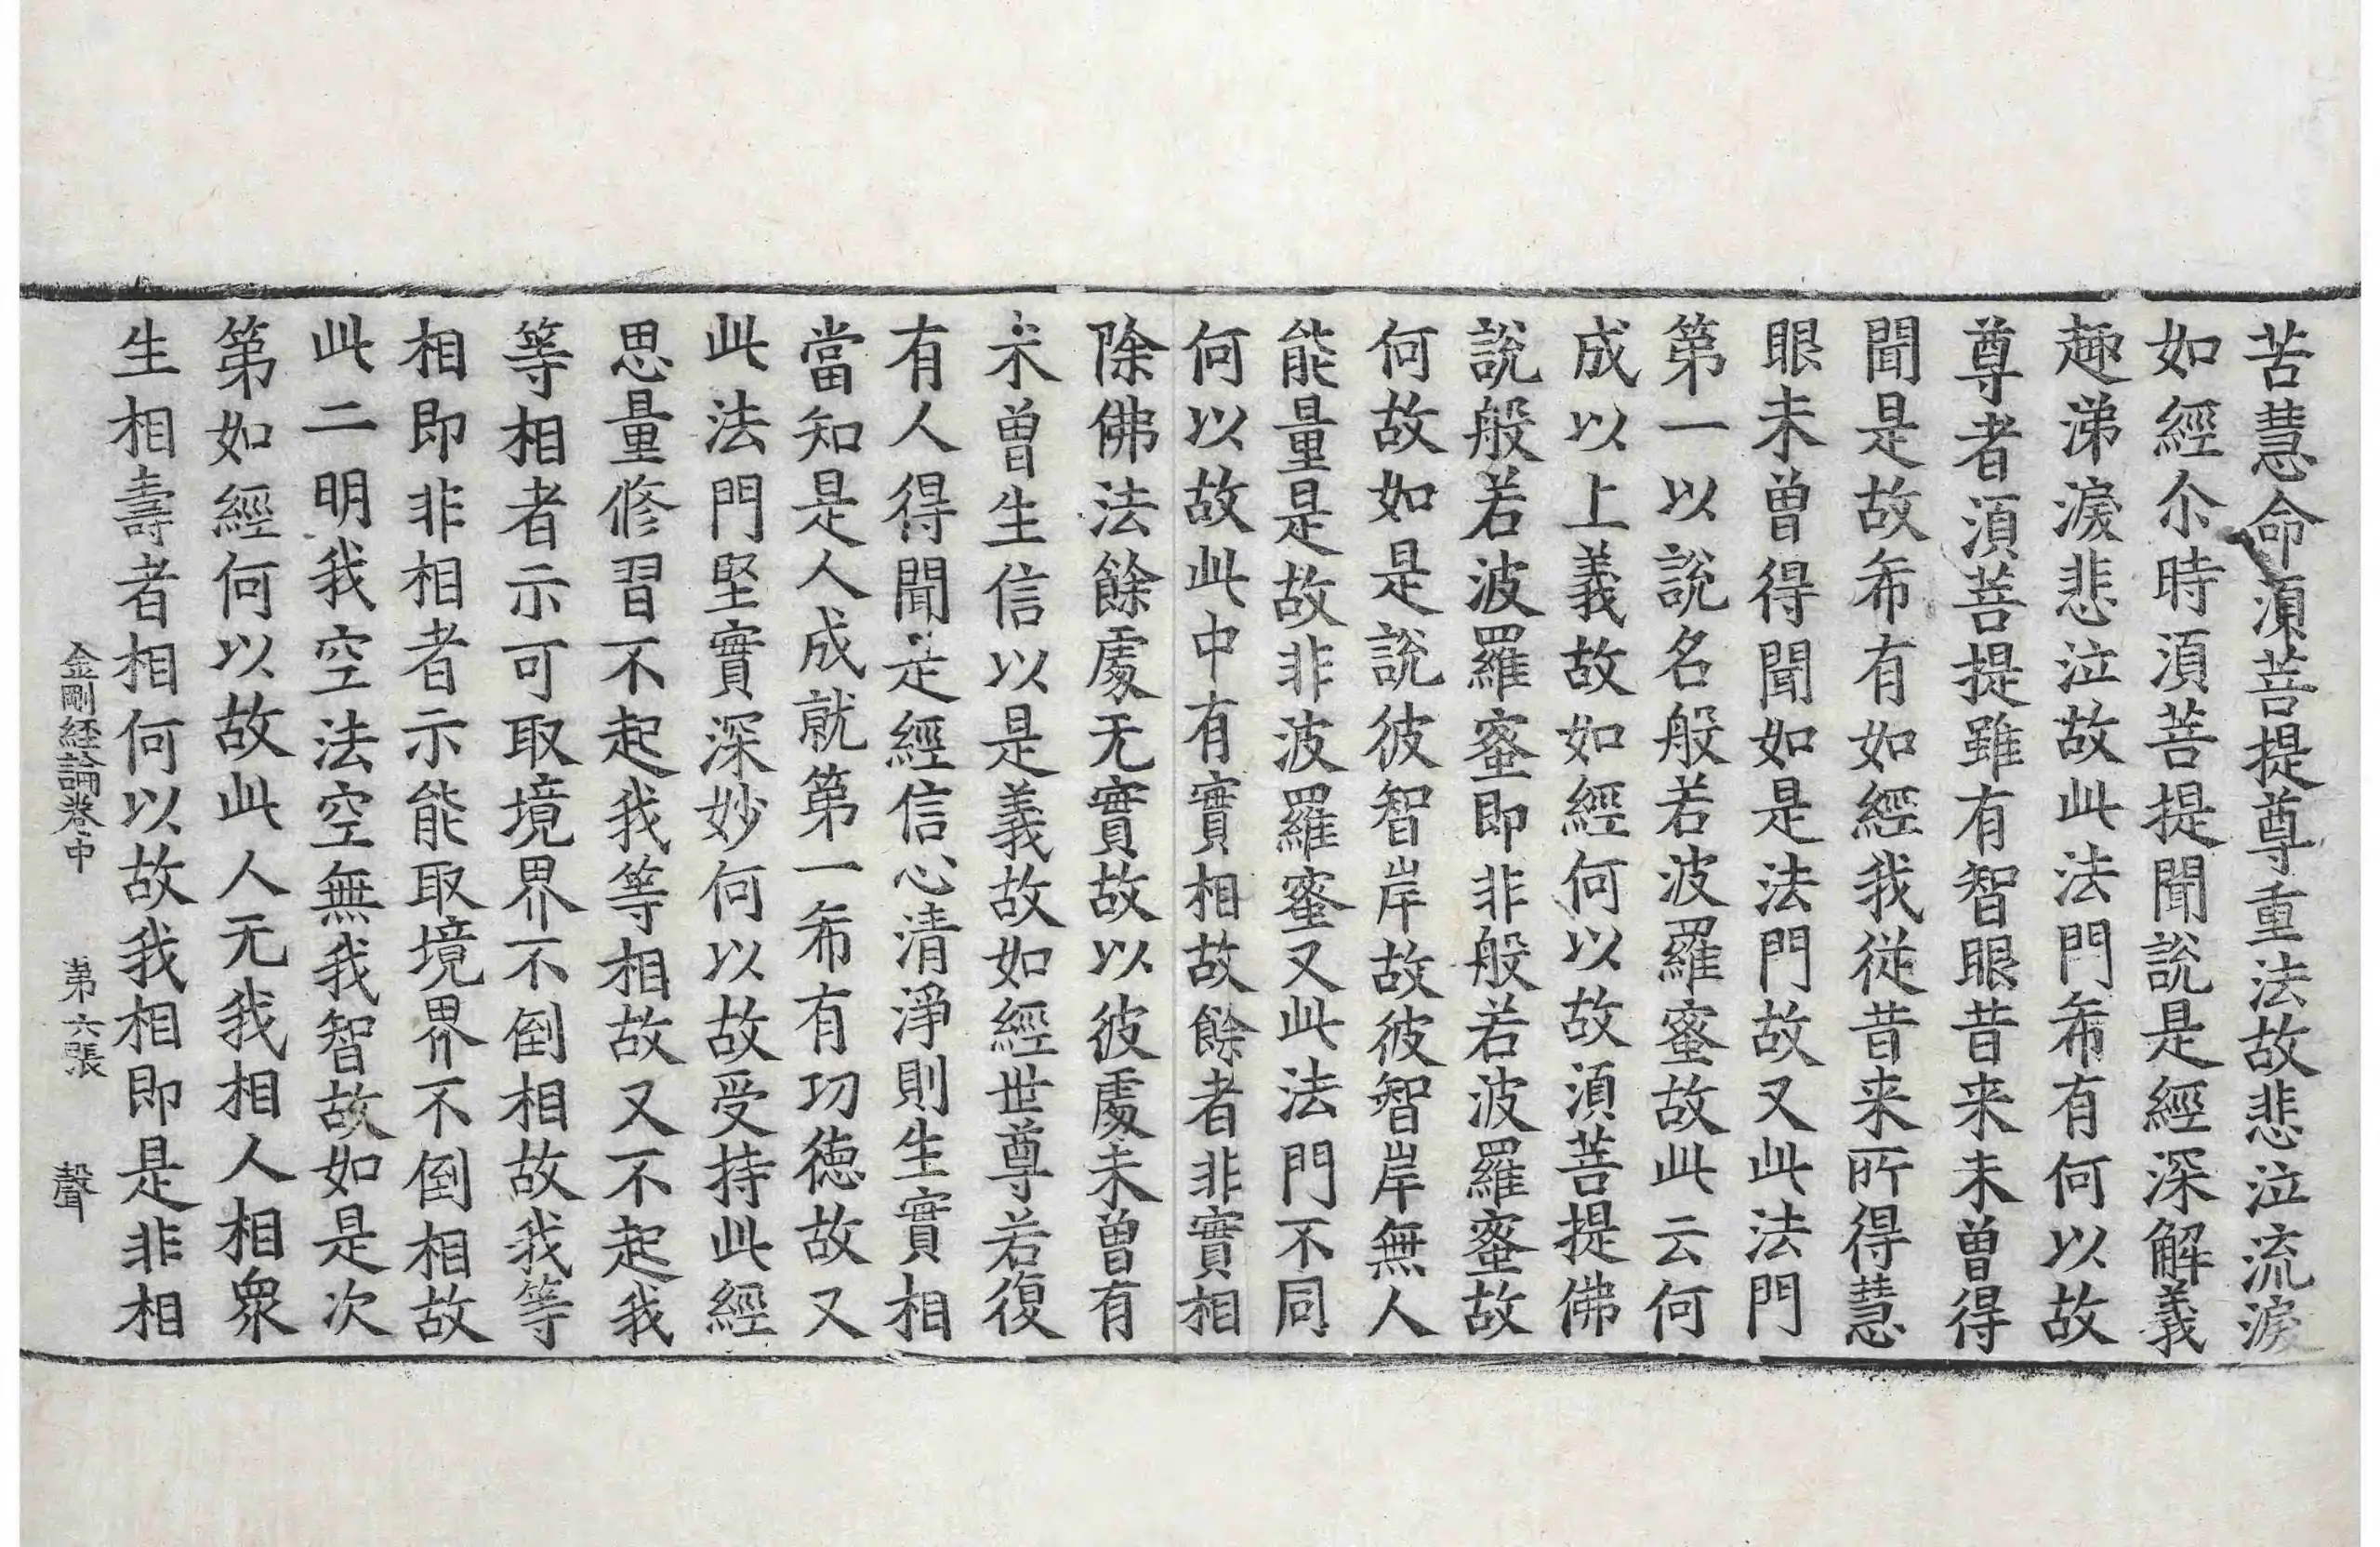 苦慧命湏菩提尊重法故悲泣流淚
如經尒時湏菩提聞說是經深解義
趣涕淚悲泣故此法門希有何以故
尊者湏菩提雖有智眼昔来未曽得
聞是故希有如經我従昔来所得慧
眼未曽得聞如是法門故又此法門
第一以說名般若波羅蜜故此云何
成以上義故如經何以故湏菩提佛
說般若波羅蜜即非般若波羅蜜故
何故如是說彼智岸故彼智岸無人
能量是故非波羅蜜又此法門不同
何以故此中有實相故餘者非實相
除佛法餘處无實故以彼處未曽有
未曽生信以是義故如經世尊若復
有人得聞是經信心清淨則生實相
當知是人成就第一希有功徳故又
此法門堅實深妙何以故受持此經
思量修習不起我等相故又不起我
等相者示可取境界不倒相故我等
相即非相者示能取境界不倒相故
此二明我空法空無我智故如是次
第如經何以故此人无我相人相衆
生相壽者相何以故我相即是非相
金剛経論巻中 第六張 聲